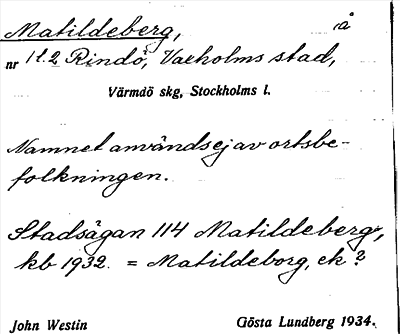 Matildeberg, å
nr 1 l. 2 Rindö, Vaxholms stad,
Värmdö skg, Stockholms l.
Namnet användsej av ortsbe-
folkningen.
Stadsägan 114 Matildeberg,
kb 1932. = Matildeborg, ek?
John Westin Gösta Lundberg 1934.